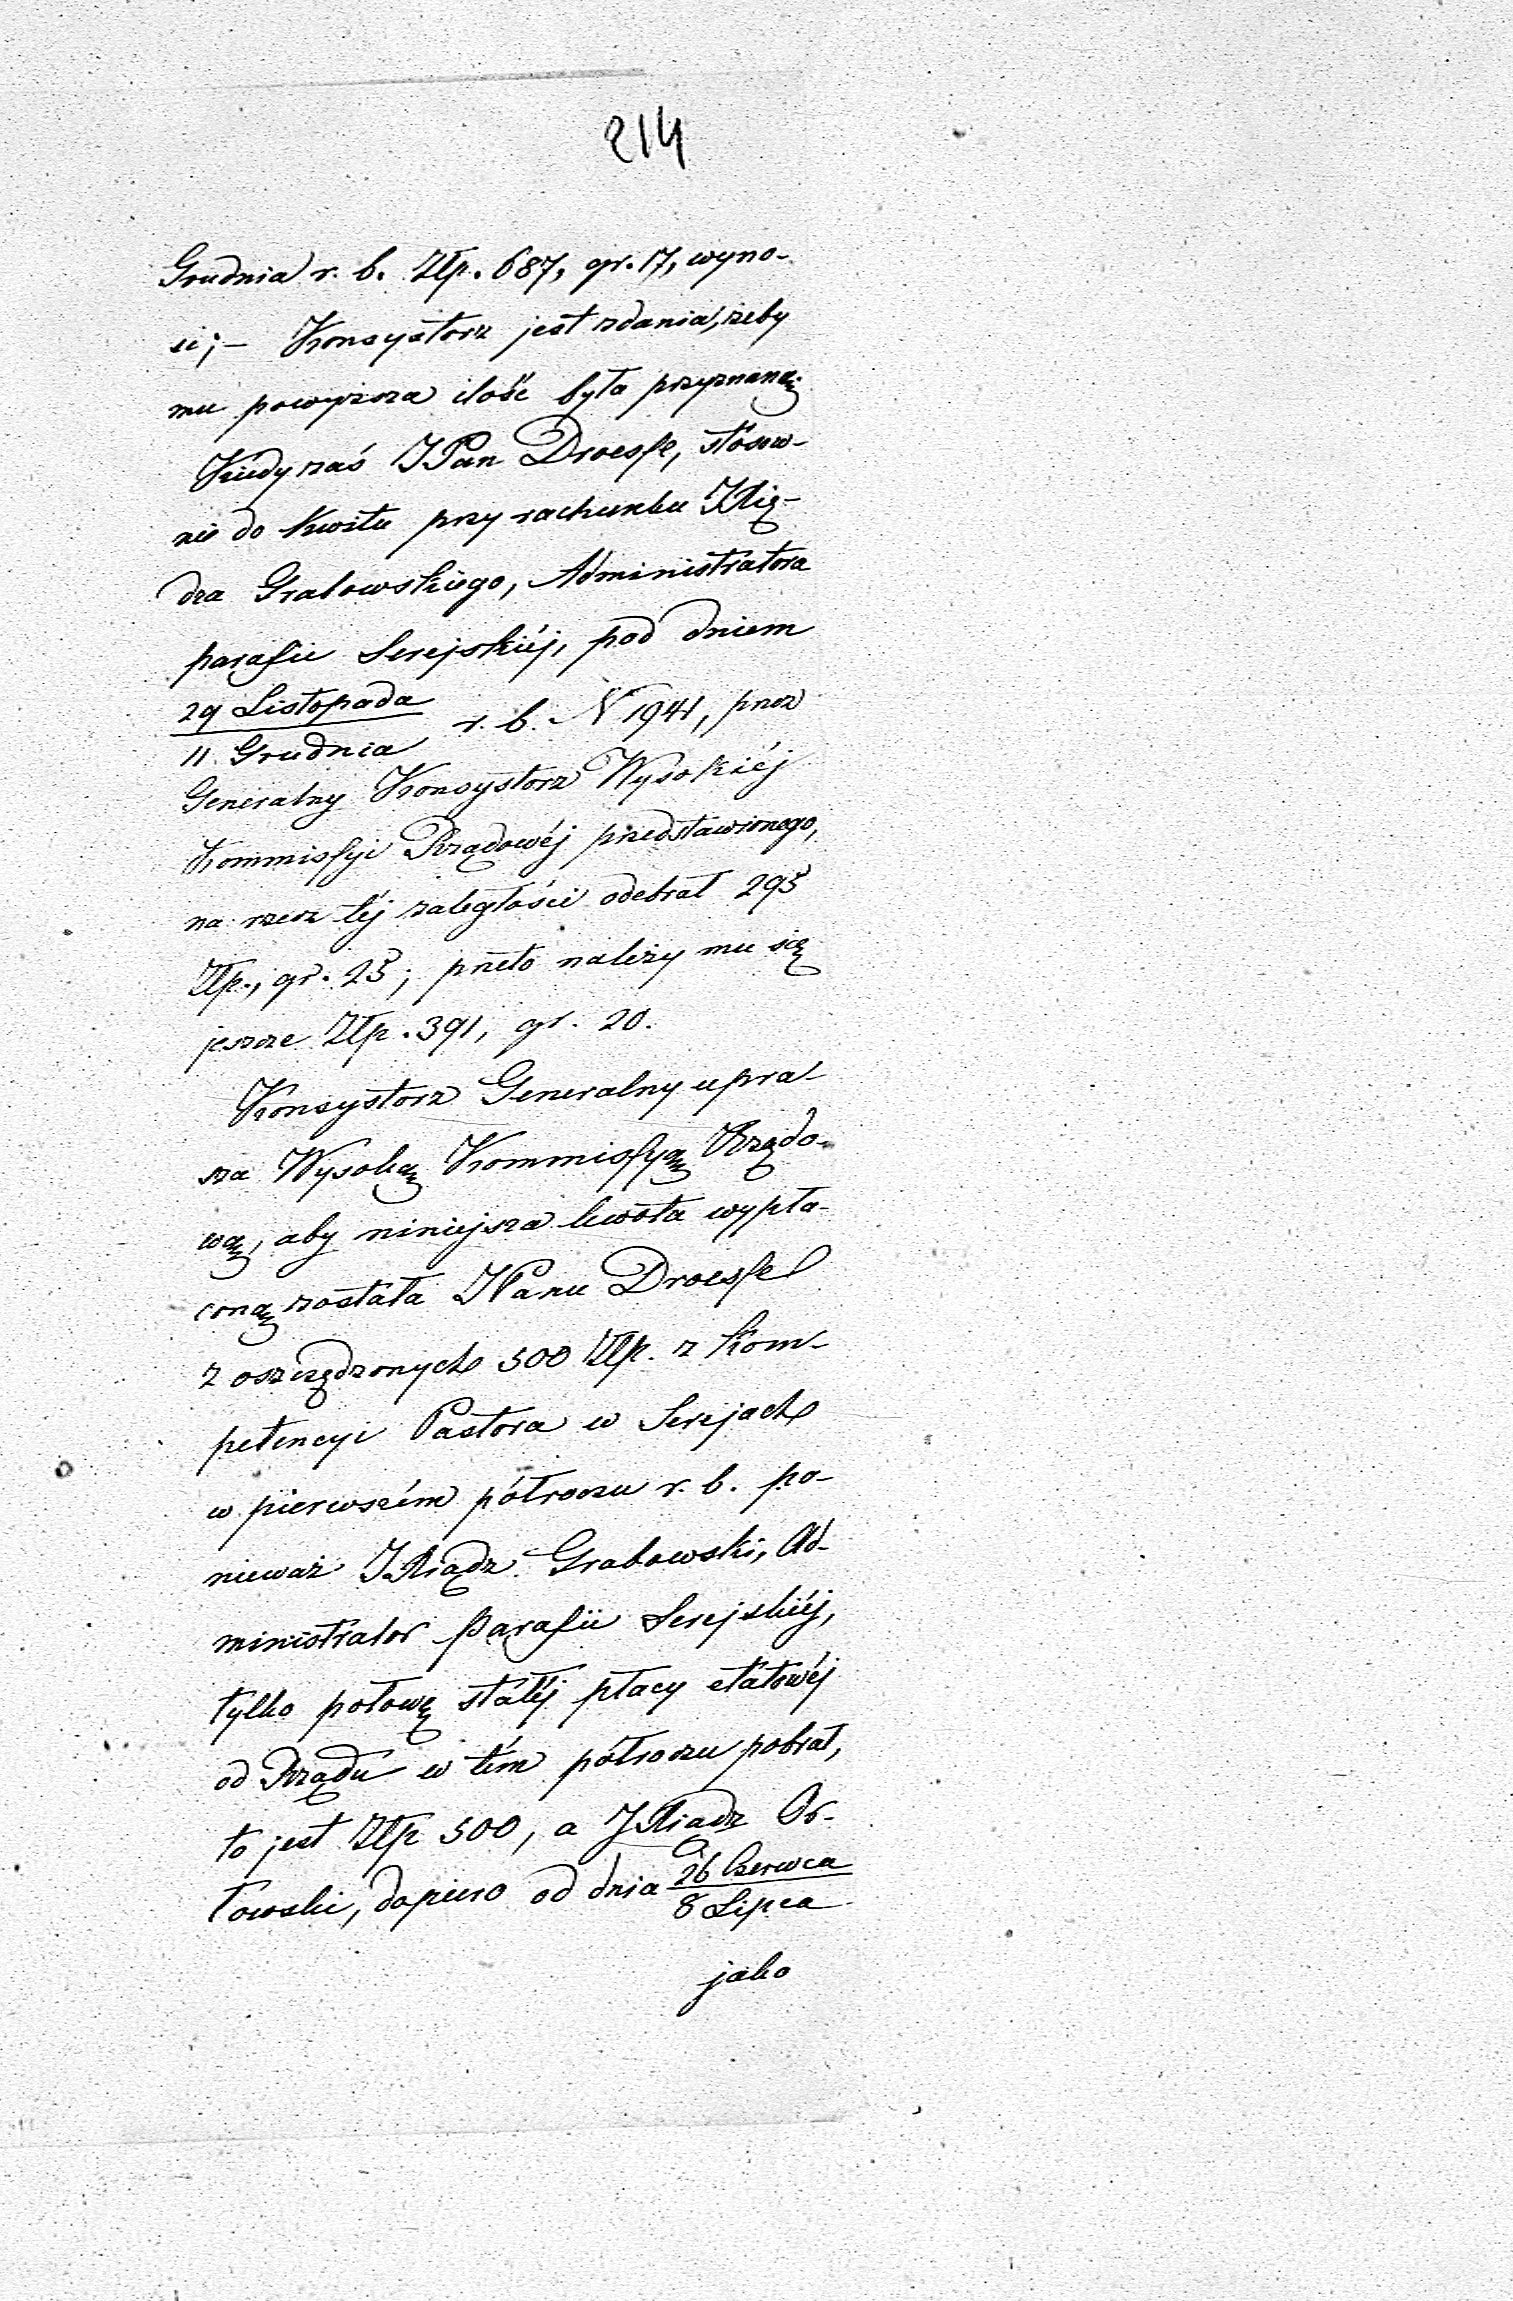 214
Grudnia r. b. Złp. 687, gr. 17, wyno-
si; – Konsystorz jest zdania, żeby
mu powyższa ilość była przyznaną
Kiedy zaś JPan Droesse, stosow-
nie do kwitu przy rachunku JXię-
dza Grabowskiego, Administratora
parafii Serejskiéj, pod dniem
29 Listopada
11 Grudnia r. b. N 1941, przez
Generalny Konsystorz Wysokiéj
Kommissyi Rządowéj przedstawionego,
na rzecz téj zaległości odebrał 295
Złp., gr. 25; przeto należy mu się
jeszcze Złp. 391, gr. 20.
Konsystorz Generalny upra-
sza Wysoką Kommissyą Rządo-
wą, aby niniejsza kwota wypła-
coną została JPanu Droesse
z oszczędzonych 500 Złp. z kom-
petencyi Pastora w Serejach
w pierwszém półroczu r. b. po-
nieważ JXiądz Grabowski, Ad-
ministrator Parafii Serejskiéj,
tylko połowę stałéj płacy etatowéj
od Rządu w tém półroczu pobrał,
to jest Złp 500, a JXiądz Or-
łowski, dopiero od dnia 26 Czerwca
8 Lipca
jako